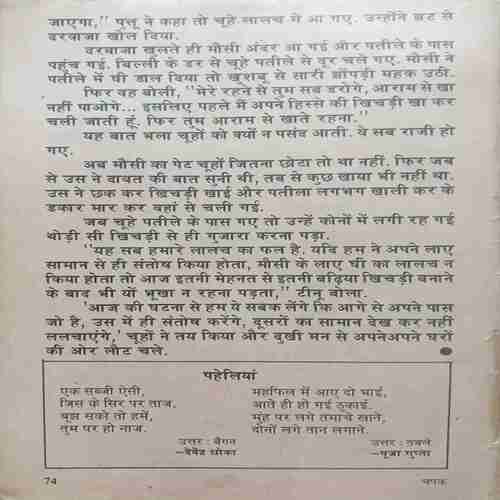 जाएगा,'' पूसू ने कहा तो चूहे लालच में आ गए. उन्होंने झट से
दरवाजा खोल दिया.
दरवाजा खुलते ही मौसी अंदर आ गई और पतीले के पास
पहुंच गई. बिल्ली के डर से चूहे पतीले से दूर चले गए. मौसी ने
पतीले में घी डाल दिया तो खुशबू से सारी झोंपड़ी महक उठी.
फिर वह बोली, ''मेरे रहने से तुम सब डरोगे, आराम से खा
नहीं पाओगे... इसलिए पहले मैं अपने हिस्से की खिचड़ी खा कर
चली जाती हूं. फिर तुम आराम से खाते रहना.''
यह बात भला चूहों को क्यों न पसंद आती. वे सब राजी हो
गए.
अब मौसी का पेट चूहों जितना छोटा तो था नहीं. फिर जब
से उस ने दावत की बात सुनी थी, तब से कुछ खाया भी नहीं था.
उस ने छक कर खिचड़ी खाई और पतीला लगभग खाली कर के
डकार मार कर वहां से चली गई.
जब चूहे पतीले के पास गए तो उन्हें कोनों में लगी रह गई
थोड़ी सी खिचड़ी से ही गुजारा करना पड़ा.
''यह सब हमारे लालच का फल है. यदि हम ने अपने लाए
सामान से ही संतोष किया होता, मौसी के लाए घी का लालच न
किया होता तो आज इतनी मेहनत से इतनी बढ़िया खिचड़ी बनाने
के बाद भी यों भूखा न रहना पड़ता,'' टीनू बोला.
'आज की घटना से हम ये सबक लेंगे कि आगे से अपने पास
जो है, उस में ही संतोष करेंगे, दूसरों का सामान देख कर नहीं
ललचाएंगे,' चूहों ने तय किया और दुखी मन से अपनेअपने घरों
की ओर लौट चले.
पहेलियां
एक सब्जी ऐसी,
जिस के सिर पर ताज,
बूझ सको तो हमें,
तुम पर हो नाज.
उत्तर : बैंगन
–देवेंद्र धोका
महफिल में आए दो भाई,
आते ही हो गई ठुकाई.
मुंह पर लगे तमाचे खाने,
दोनों लगे तान लगाने.
उत्तर : तबले
–पूजा गुप्ता
74
चंपक